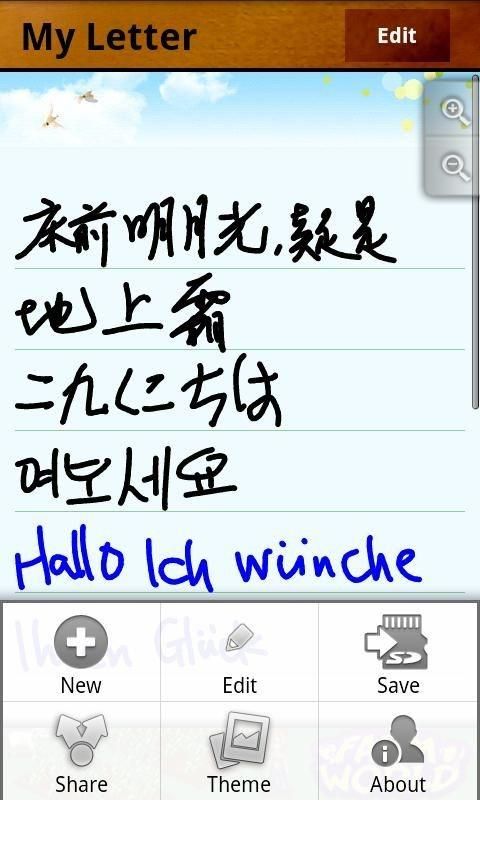 My Letter
Edit
床前明月光,疑是
地上霜
二九くにちは
여보세요
Hallo Ich wünche
Ihnen Glück
New
Edit
SD
Save
Share
Theme
About